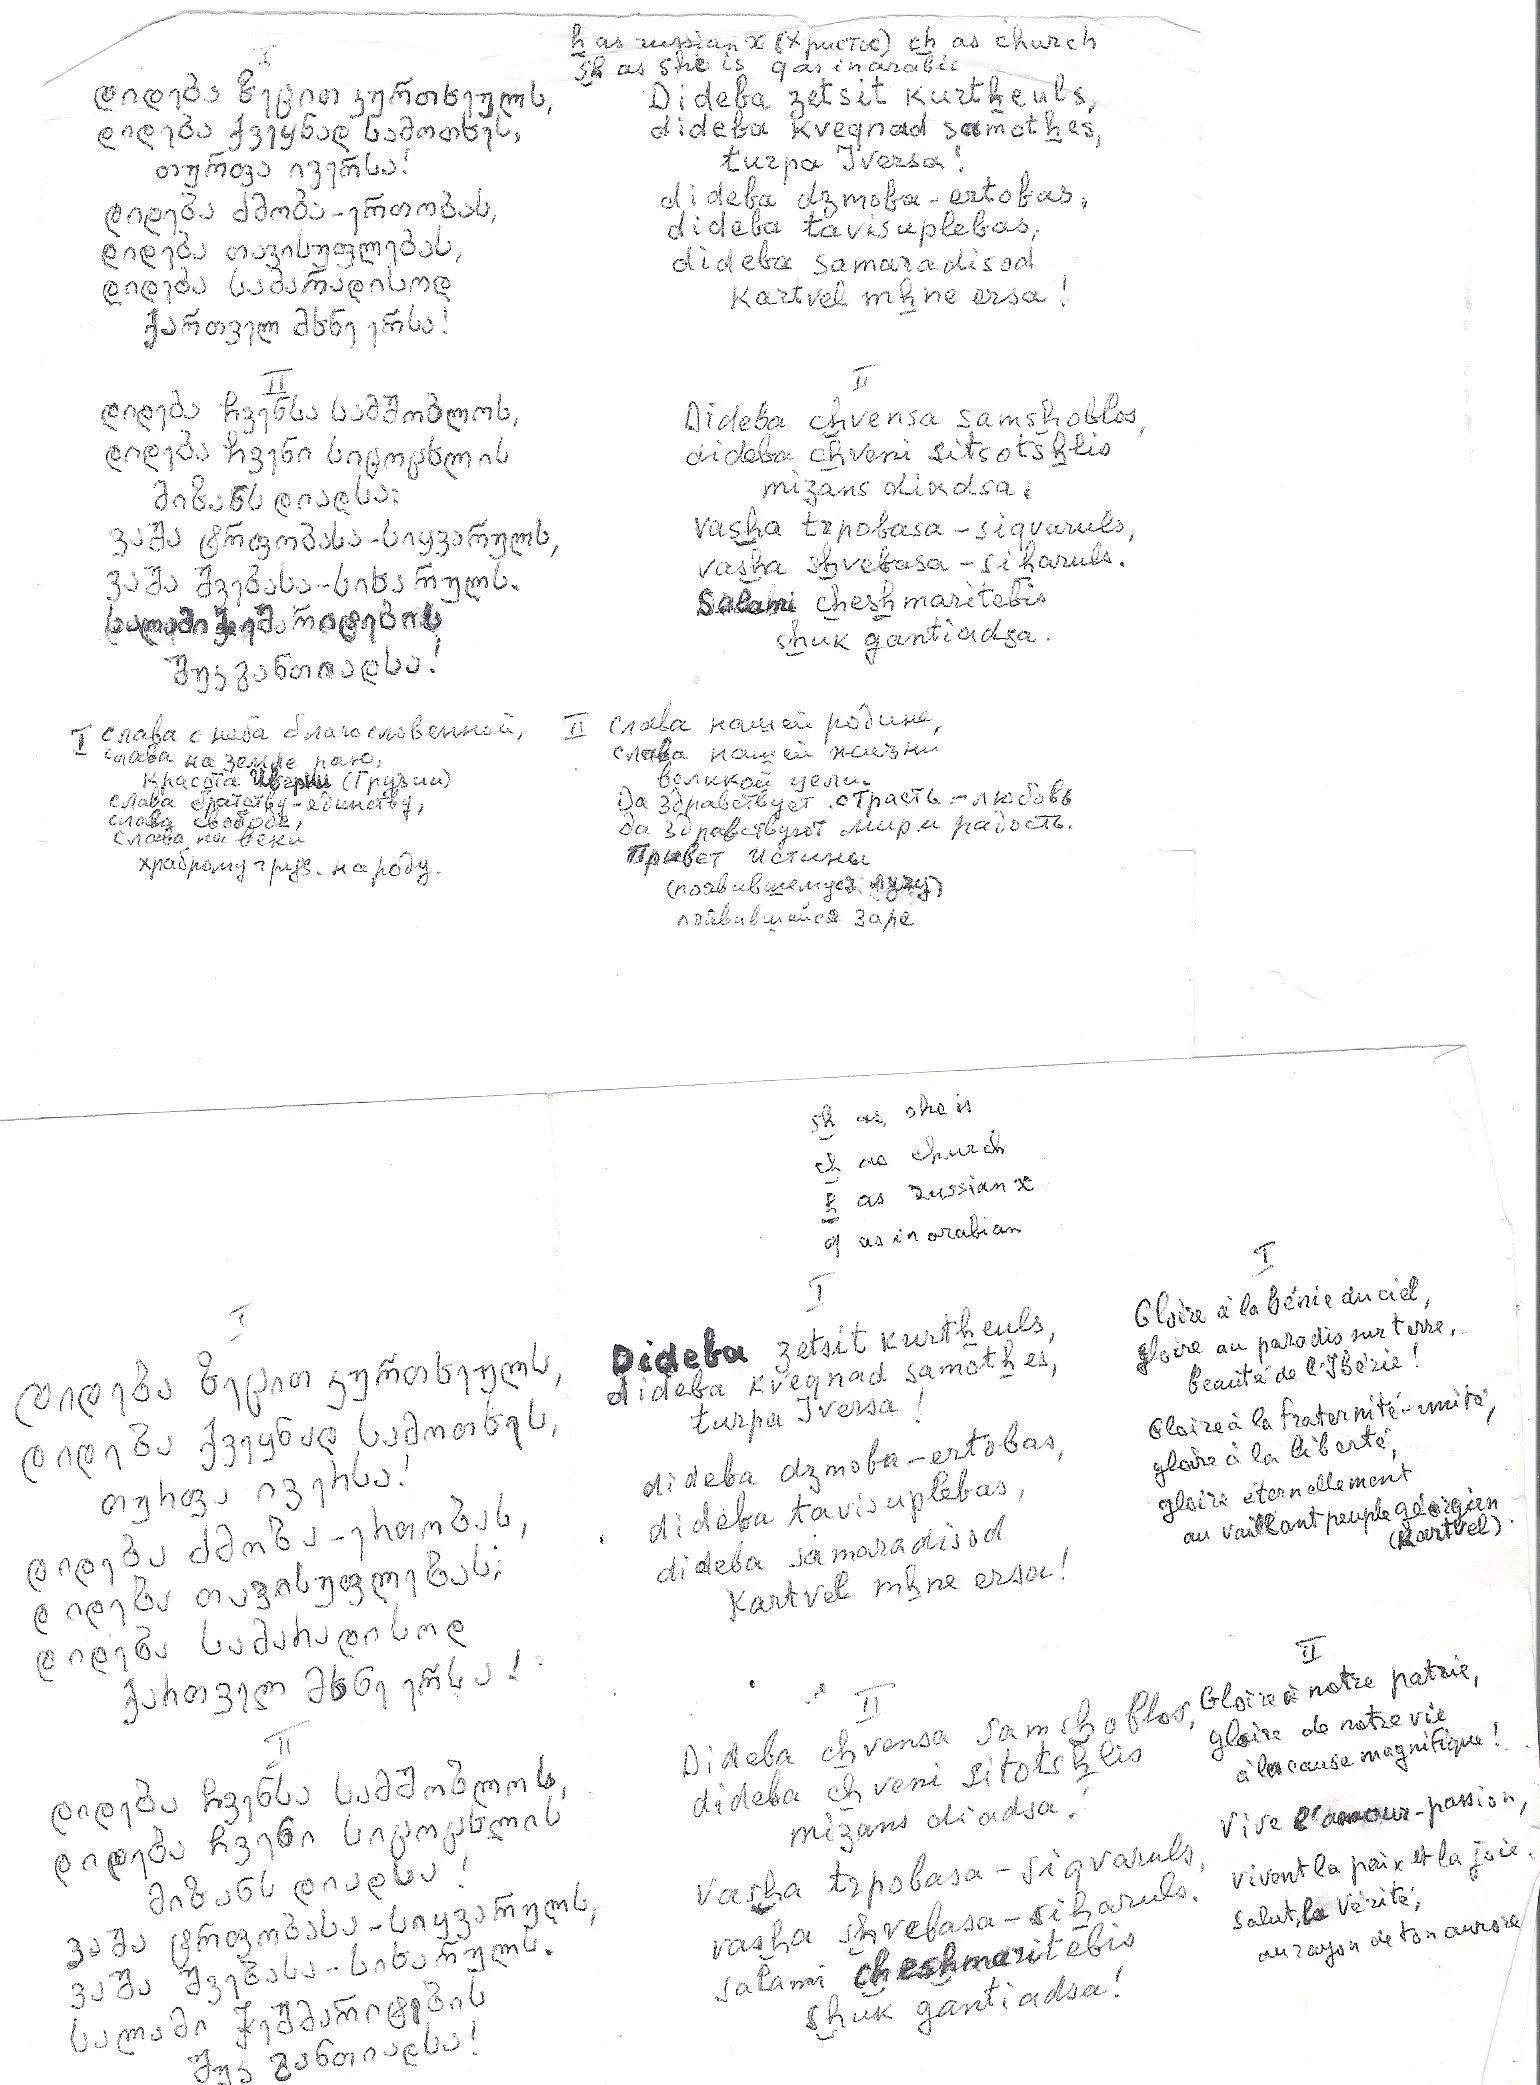 h as russian х (Христос) ch as church
sh as she is q as in arabic
I
დიდება ზეცით კურთხეულს,
დიდება ქვეყნად სამოთხეს,
თურფა ივერსა!
დიდება ძმობა-ერთობას,
დიდება თავისუფლებას,
დიდება სამარადისოდ
ქართველ მხნე ერსა!
Dideba zetsit kurtheuls,
dideba kveqnad samothes,
turpa Iversa!
dideba dzmoba-ertobas,
dideba tavisuplebas,
dideba samaradisod
Kartvel mhne ersa!
II
დიდება ჩვენსა სამშობლოს,
დიდება ჩვენი სიცოცხლის
მიზანს დიადსა:
ვაშა ტრფობასა-სიყვარულს,
ვაშა შვებასა-სიხარულს.
სალამი ჭეშმარიტების
შუკ განთიადსა!
II
Dideba chvensa samshoblos,
dideba chveni sitsotshlis
mizans diadsa:
vasha trpobasa-siqvaruls,
vasha shvebasa-siharuls.
Salami cheshmaritebis
shuk gantiadsa.
I слава с неба благословенной,
слава на земле раю,
Красота Иверии (Грузии)
слава братству-единству,
слава свободе,
слава на веки
храброму груз. народу.
II слава нашей родине,
слава нашей жизни
великой цели.
Да здравствует страсть-любовь
да здравствуют мир и радость.
Привет Истины
(появившемуся лучу)
появившейся заре
sh as she is
ch as church
h as russian х
q as in arabian
I
დიდება ზეცით კურთხეულს,
დიდება ქვეყნად სამოთხეს,
თურფა ივერსა!
დიდება ძმობა-ერთობას,
დიდება თავისუფლებას;
დიდება სამარადისოდ
ქართველ მხნე ერსა!
I
Dideba zetsit kurtheuls,
dideba kveqnad samothes,
turpa Iversa!
dideba dzmoba-ertobas,
dideba tavisuplebas,
dideba samaradisod
Kartvel mhne ersa!
I
Gloire à la bénie du ciel,
gloire au paradis sur terre,
beauté de l'Ibérie!
Gloire à la fraternité-unité,
gloire à la liberté,
gloire éternellement
au vaillant peuple géorgien
(Kartvel)
II
დიდება ჩვენსა სამშობლოს,
დიდება ჩვენი სიცოცხლის
მიზანს დიადსა!
ვაშა ტრფობასა-სიყვარულს,
ვაშა შვებასა-სიხარულს.
სალამი ჭეშმარიტების
შუკ განთიადსა!
II
Dideba chvensa samshoblos,
dideba chveni sitotshlis
mizans diadsa!
vasha trpobasa-siqvaruls,
vasha shvebasa-siharuls.
salami cheshmaritebis
shuk gantiadsa!
II
Gloire à notre patrie,
gloire de notre vie
à la cause magnifique!
Vive l'amour-passion,
vivent la paix et la joie.
Salut, la Vérité,
au rayon de ton aurore